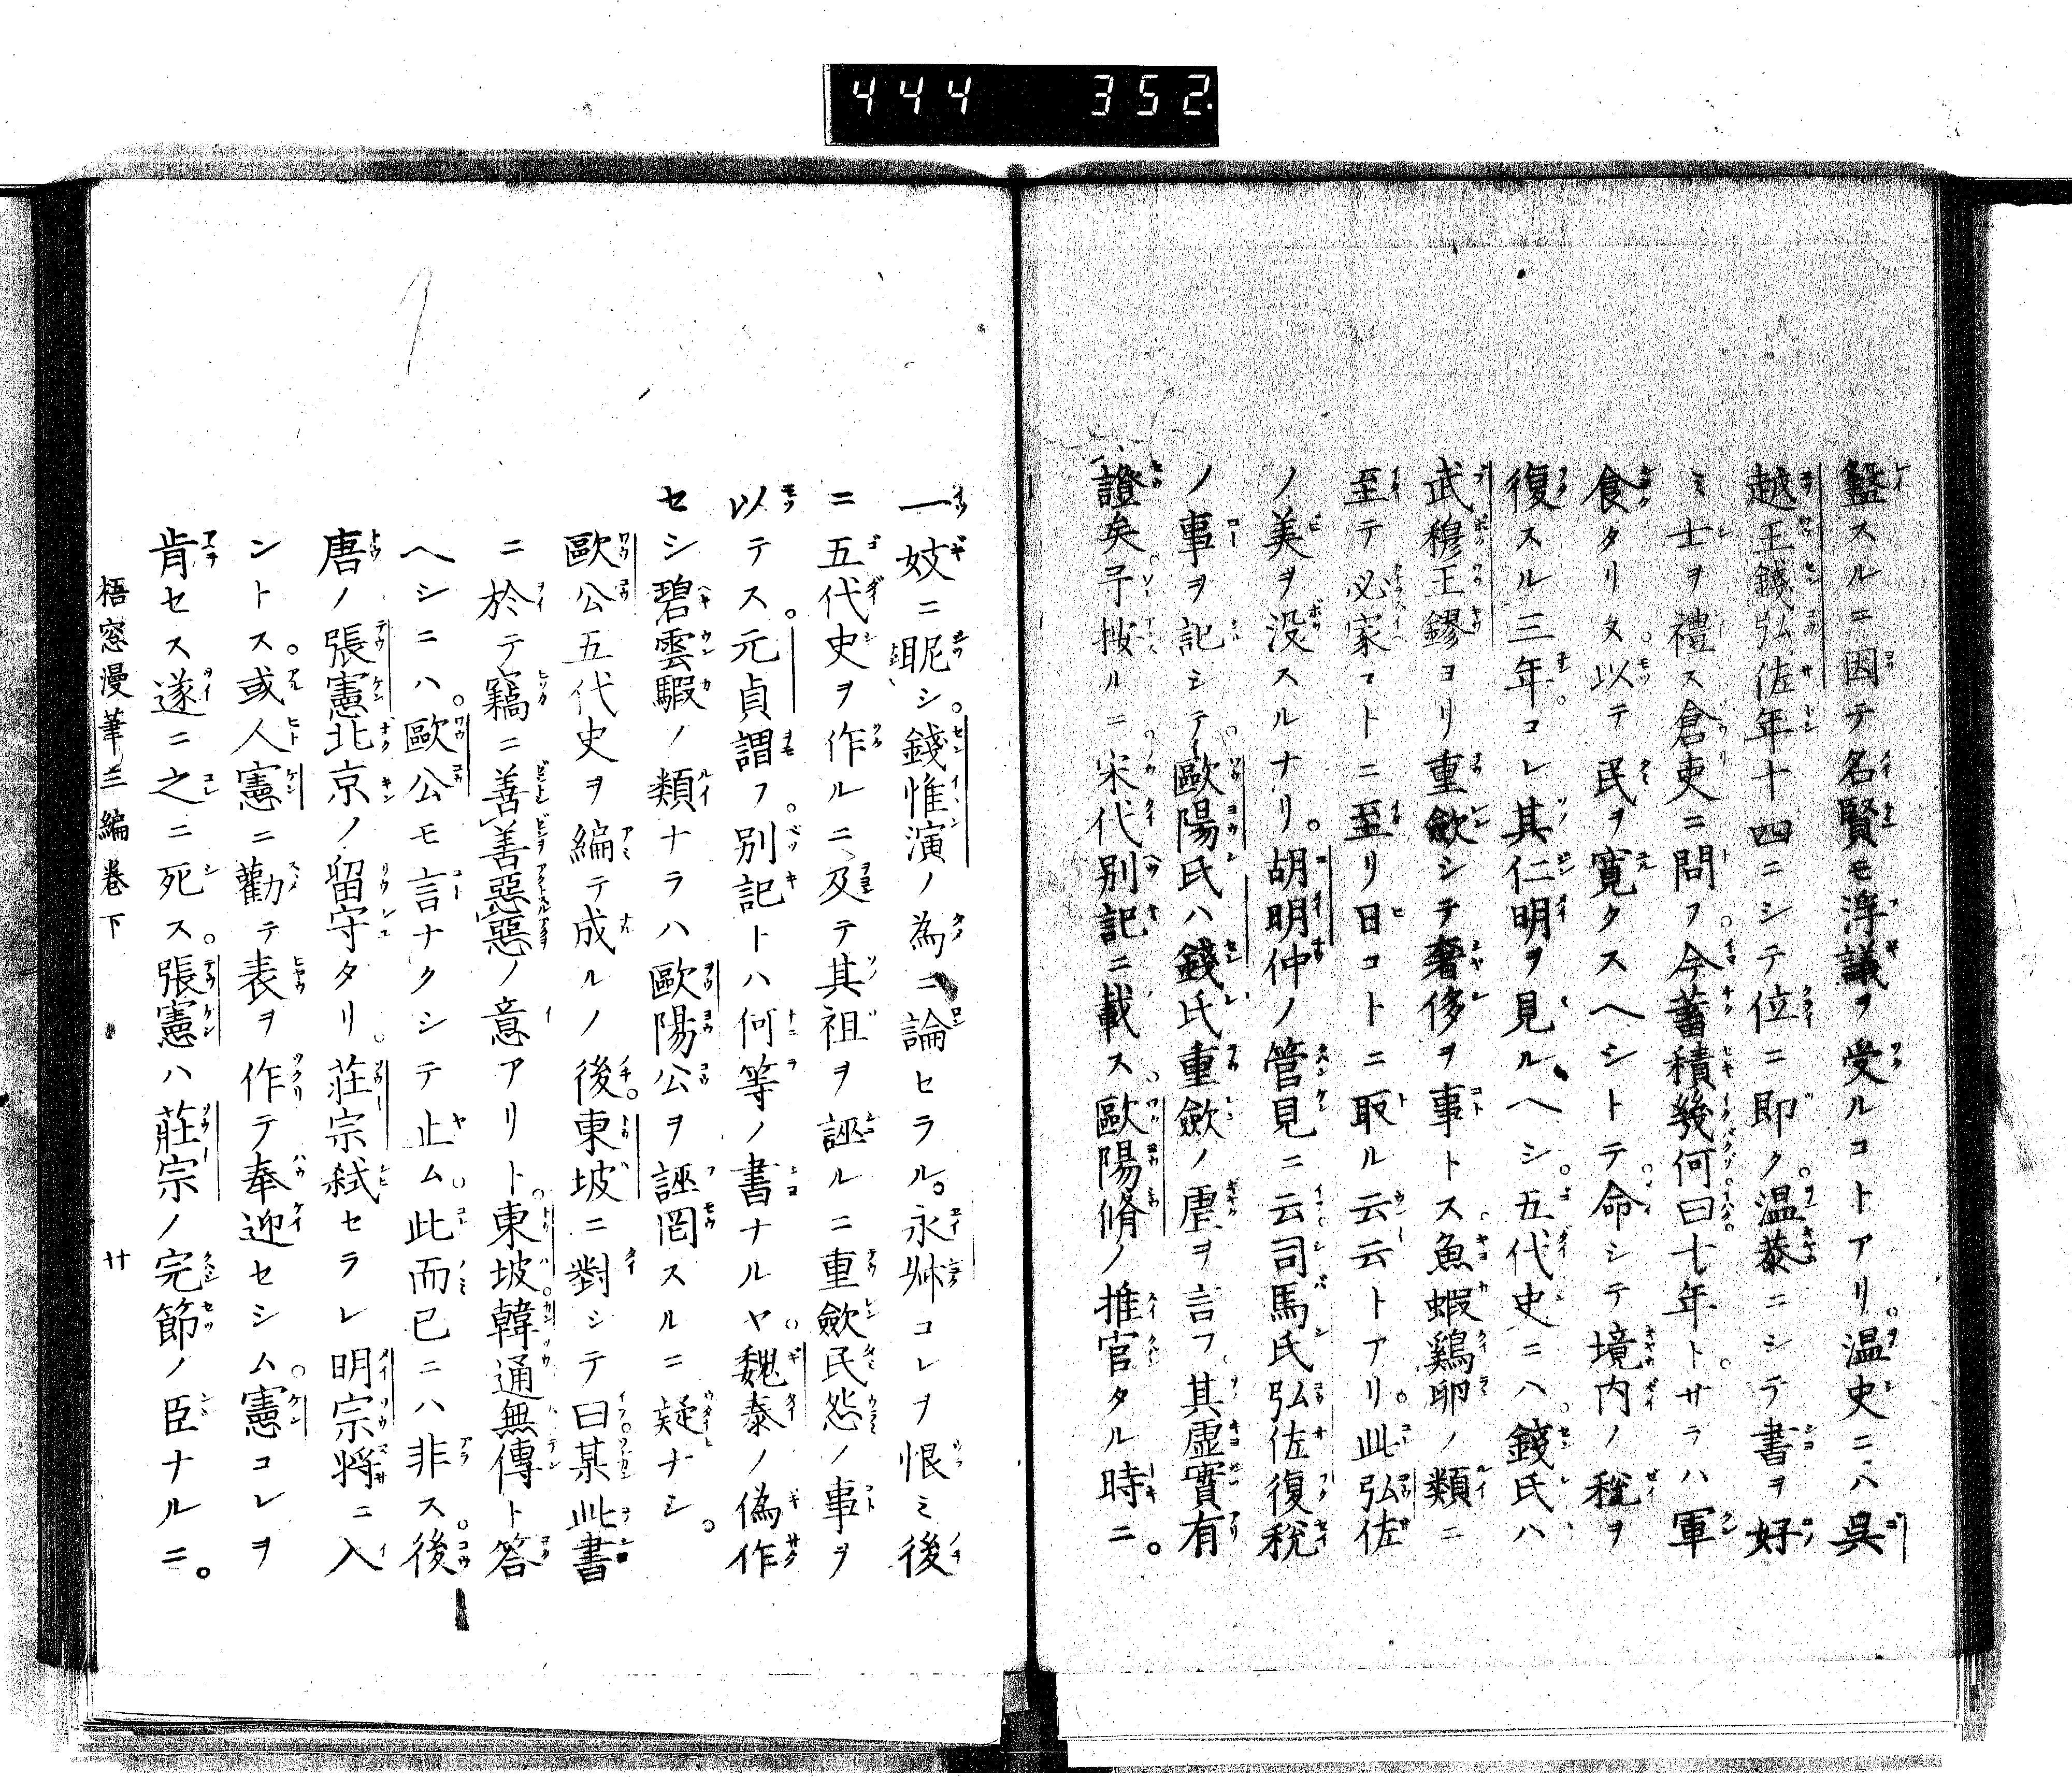 444 352
盭スルニ因テ名賢モ浮議ヲ受ルコトアリ。温史ニハ呉
越王錢弘佐年十四ニシテ位ニ即ク。温恭ニシテ書ヲ好
ミ士ヲ禮ス倉吏ニ問フ。今蓄積幾何曰七年ト。サラハ軍
食タリタ。以テ民ヲ寛クスヘシトテ。命シテ境内ノ税ヲ
復スル三年。コレ其仁明ヲ見ルヘシ。五代史ニハ。錢氏ハ
武穆王鏐ヨリ重歛シテ奢侈ヲ事トス。魚蝦鷄卵ノ類ニ
至テ必家コトニ至リ日コトニ取ル云云トアリ。此弘佐
ノ美ヲ没スルナリ。胡明仲ノ管見ニ云司馬氏弘佐復税
ノ事ヲ記シテ。歐陽氏ハ錢氏重歛ノ虐ヲ言フ。其虚實有
證矣。予按ルニ。宋代別記ニ載ス。歐陽脩ノ推官タル時ニ。
一妓ニ昵シ。錢惟演ノ為ニ論セラル。永叔コレヲ恨ミ後
ニ五代史ヲ作ルニ及テ其祖ヲ誣ルニ重歛民怨ノ事ヲ
以テス。元貞謂フ。別記トハ何等ノ書ナルヤ。魏泰ノ偽作
セシ碧雲騢ノ類ナラハ歐陽公ヲ誣罔スルニ疑ナシ。
歐公五代史ヲ編テ成ルノ後。東坡ニ對シテ曰。某此書
ニ於テ竊ニ善善惡惡ノ意アリト。東坡。韓通無傳ト答
ヘシニハ。歐公モ言ナクシテ止ム。此而已ニハ非ス。後
唐ノ張憲北京ノ留守タリ。莊宗弑セラレ明宗将ニ入
ントス。或人憲ニ勸テ表ヲ作テ奉迎セシム。憲コレヲ
肯セス遂ニ之ニ死ス。張憲ハ莊宗ノ完節ノ臣ナルニ。
梧窓漫筆三編巻下 廿